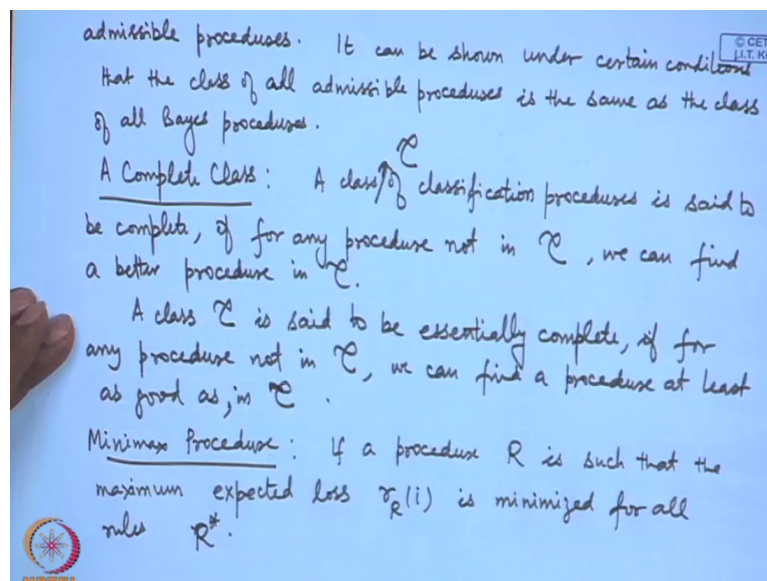 admissible procedures. It can be shown under certain conditions
that the class of all admissible procedures is the same as the class
of all Bayes procedures.
A Complete Class: A class ℭ of classification procedures is said to
be complete, if for any procedure not in ℭ, we can find
a better procedure in ℭ.
A class ℭ is said to be essentially complete, if for
any procedure not in ℭ, we can find a procedure at least
as good as, in ℭ.
Minimax Procedure: If a procedure R is such that the
maximum expected loss r_R(i) is minimized for all
rules R*.
© CET
I.I.T. K